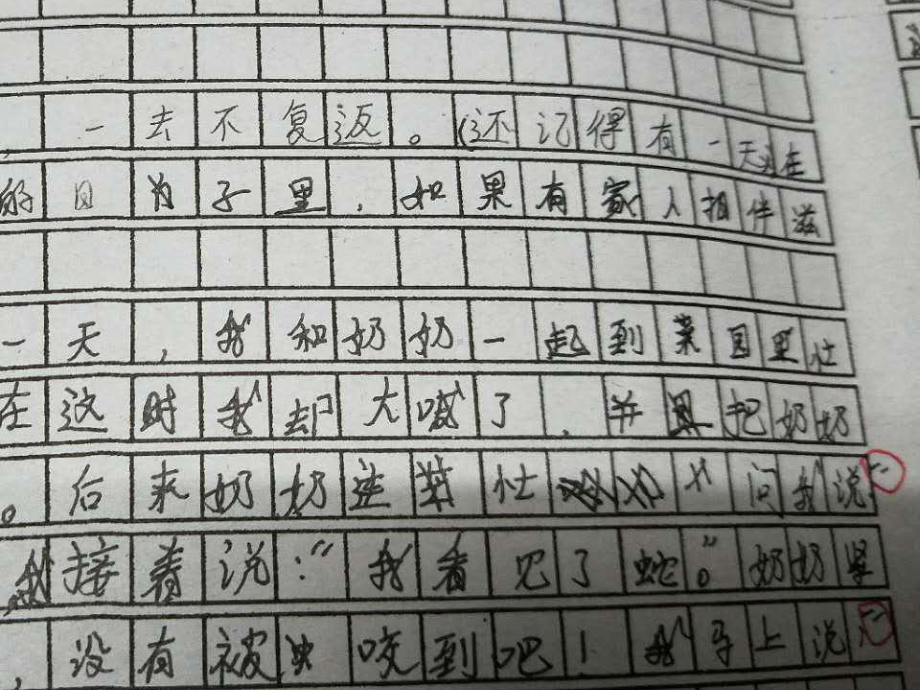 ，一去不复返。(还记得有一天在
的日为子里，如果有家人相伴滋
一天，我和奶奶一起到菜园里忙
在这时我却大喊了，并且把奶奶
。后来奶奶连装忙问我说：“
我接着说：“我看见了蛇。”奶奶紧
，没有被虫咬到吧！我马上说：“